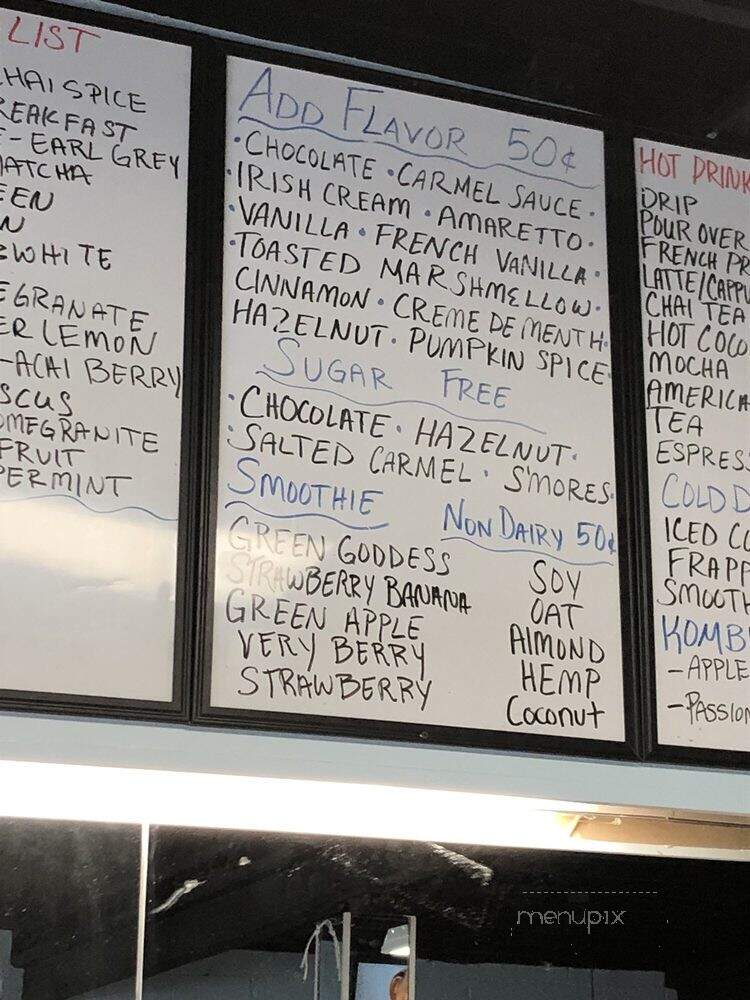 LIST
CHAI SPICE
BREAKFAST
- EARL GREY
MATCHA
WHITE
LEMON
-ACAI BERRY
POMEGRANITE
FRUIT
ADD FLAVOR 50¢
•CHOCOLATE •CARMEL SAUCE•
•IRISH CREAM •AMARETTO•
•VANILLA• FRENCH VANILLA•
•TOASTED MARSHMELLOW•
CINNAMON• CREME DE MENTH•
HAZELNUT• PUMPKIN SPICE
SUGAR FREE
•CHOCOLATE• HAZELNUT•
•SALTED CARMEL• S'MORES•
SMOOTHIE
GREEN GODDESS
STRAWBERRY BANANA
GREEN APPLE
VERY BERRY
STRAWBERRY
NON DAIRY 50¢
SOY
OAT
AlMOND
HEMP
Coconut
HOT DRINK
DRIP
POUR OVER
FRENCH PR
LATTE/CAPPU
CHAI TEA
HOT COCO
MOCHA
AMERICA
TEA
ESPRESS
COLD D
ICED CO
FRAPP
SMOOTH
KOMB
-APPLE
-PASSION
menupix